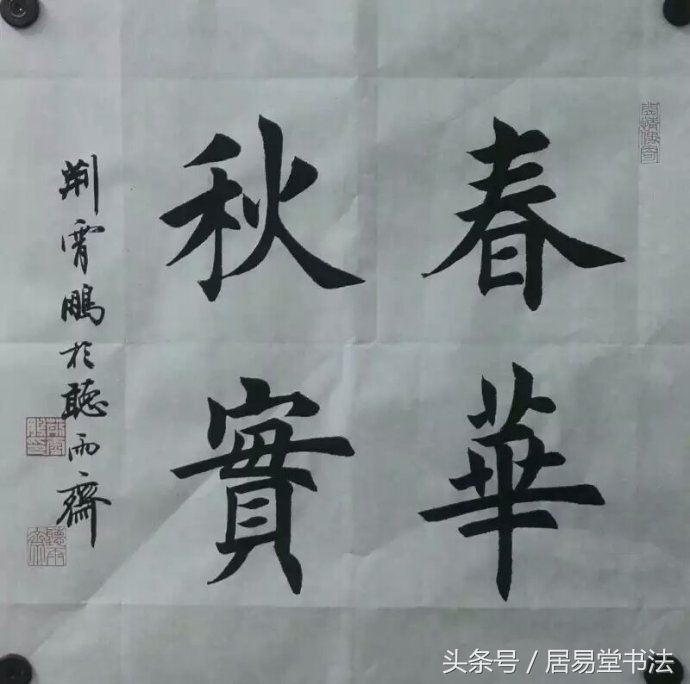 春華
秋實
荆霄鵬於聽雨齋
头条号/居易堂书法